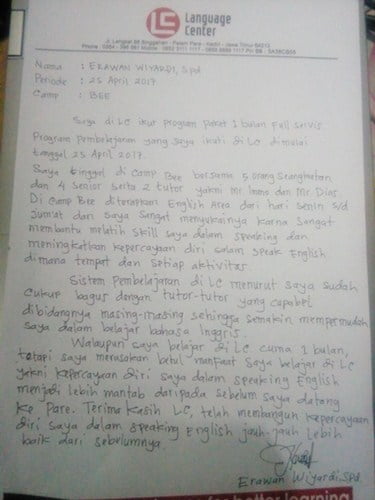 LC Language Center
Jl. Langkat 88 Singgahan - Pelem Pare - Kediri - Jawa Timur 64213
Nama : ERAWAN WIYARDI, Spd
Periode : 25 April 2017
Camp : BEE
Saya di LC ikut program paket 1 bulan Full Servis
Program Pembelajaran yang saya ikuti di LC dimulai
tanggal 25 April 2017.
Saya tinggal di Camp Bee bersama 5 orang Seangkatan
dan 4 Senior serta 2 tutor yakni Mr Immo dan Mr Dias
Di Camp Bee diterapkan English Area dari hari Senin s/d
Jum'at dan saya sangat menyukainya karna sangat
membantu melatih skill saya dalam speaking dan
meningkatkan kepercayaan diri dalam speak English
dimana tempat dan setiap aktivitas.
Sistem Pembelajaran di LC menurut saya sudah
cukup bagus dengan tutor-tutor yang capabel
dibidangnya masing-masing sehingga semakin mempermudah
saya dalam belajar bahasa Inggris.
Walaupun saya belajar di LC cuma 1 bulan,
tetapi saya merasakan betul manfaat saya belajar di LC
yakni kepercayaan diri saya dalam speaking English
menjadi lebih mantab daripada sebelum saya datang
ke Pare. Terima kasih LC, telah membangun kepercayaan
diri saya dalam speaking English jauh-jauh lebih
baik dari sebelumnya.
Erawan Wiyardi, Spd.